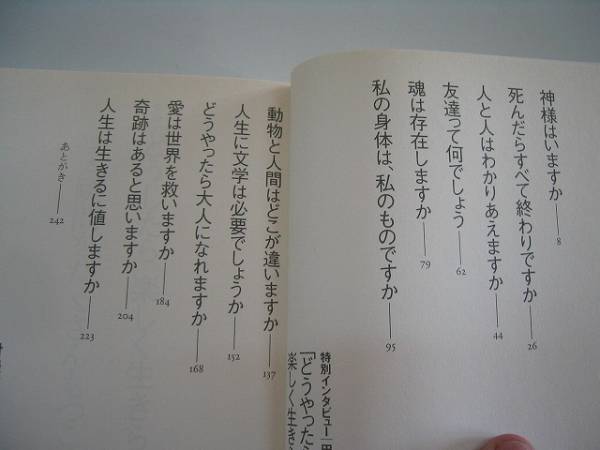 神様はいますか――8
死んだらすべて終わりですか――26
人と人はわかりあえますか――44
友達って何でしょう――62
魂は存在しますか――79
私の身体は、私のものですか――95
特別インタビュー
「どうやったら
楽しく生き
動物と人間はどこが違いますか――137
人生に文学は必要でしょうか――152
どうやったら大人になれますか――168
愛は世界を救いますか――184
奇跡はあると思いますか――204
人生は生きるに値しますか――223
あとがき――242